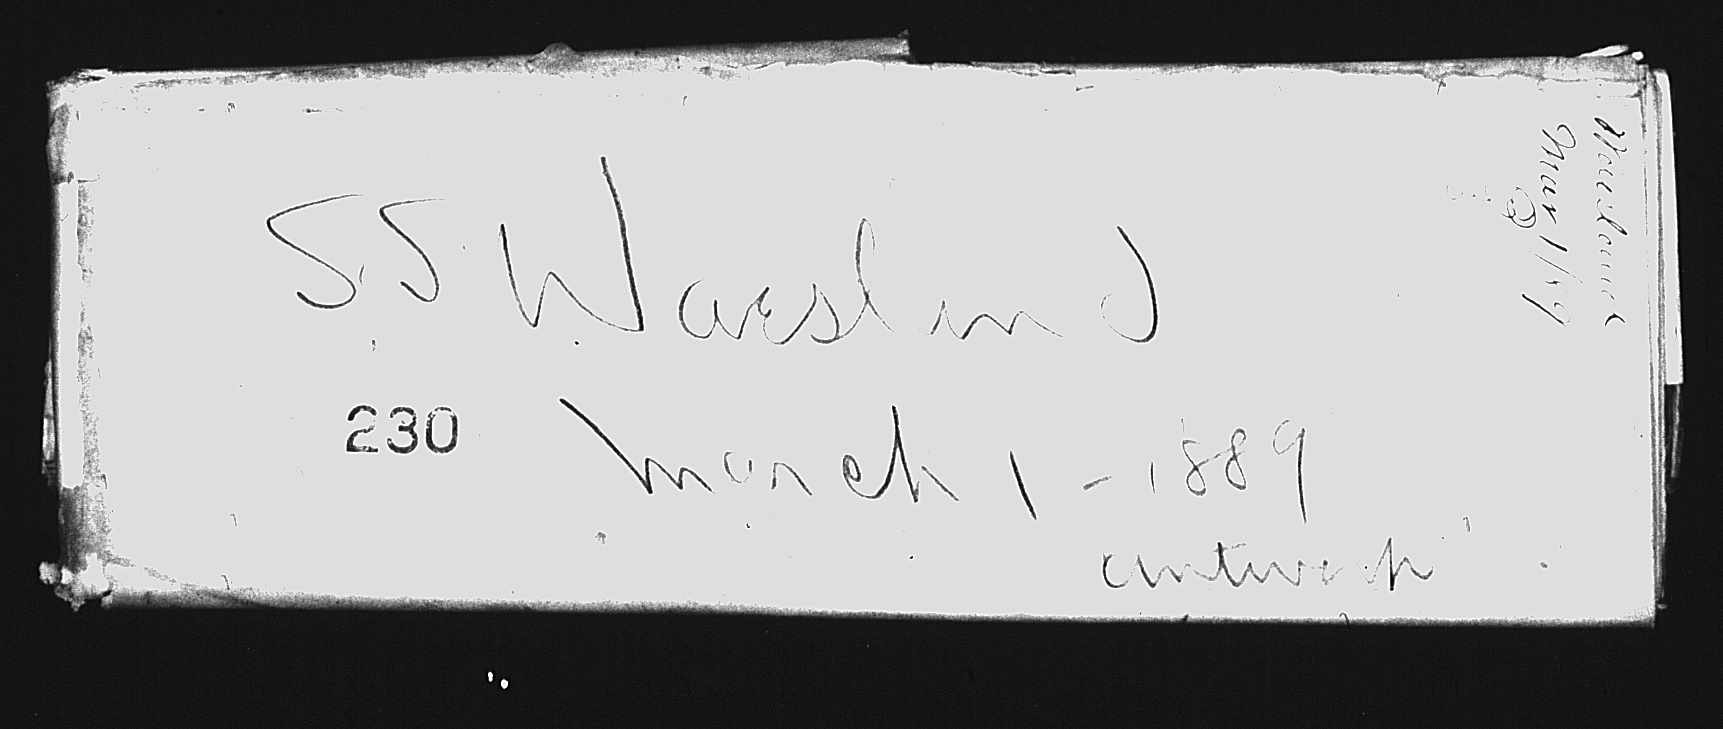 SS Waesland
230 March 1 - 1889
antwerp
Waesland
Mar 1/89